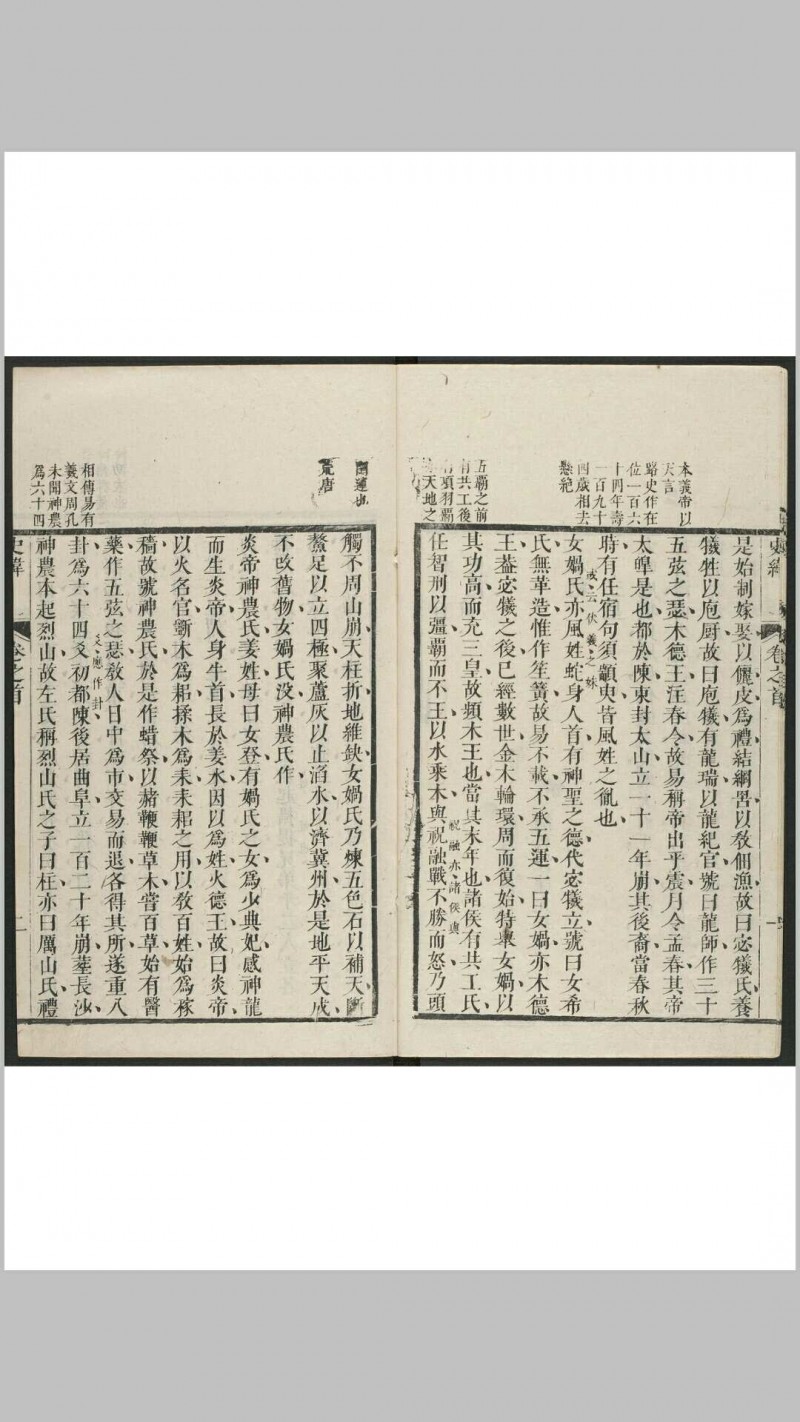 本義帝以
天言
路史作在
位一百六
十四年壽
一百九十
四歲相去
懸絶
五霸之前
有共工後
有項羽霸
天地之
史緯
卷之首
一
是始制嫁娶以儷皮爲禮結網罟以敎佃漁故曰宓犧氏養
犧牲以庖厨故曰庖犧有龍瑞以龍紀官號曰龍師作三十
五弦之瑟木德王注春令故易稱帝出乎震月令孟春其帝
太皥是也都於陳東封太山立一十一年崩其後裔當春秋
時有任宿句須顓臾皆風姓之胤也
或云伏羲之妹
女媧氏亦風姓蛇身人首有神聖之德代宓犧立號曰女希
氏無革造惟作笙簧故易不載不承五運一曰女媧亦木德
王葢宓犧之後已經數世金木輪環周而復始特舉女媧以
其功高而充三皇故頻木王也當其末年也諸侯有共工氏
祝融亦諸侯
任智刑以彊霸而不王以水乘木與祝融戰不勝而怒乃頭
團連也
荒唐
相傳易有
羲文周孔
未聞神農
爲六十四
觸不周山崩天柱折地維缺女媧氏乃煉五色石以補天斷
鰲足以立四極聚蘆灰以止滔水以濟冀州於是地平天成
不改舊物女媧氏没神農氏作
炎帝神農氏姜姓母曰女登有媧氏之女爲少典妃感神龍
而生炎帝人身牛首長於姜水因以爲姓火德王故曰炎帝
以火名官斲木爲耜揉木爲耒耒耜之用以敎百姓始爲稼
穡故號神農氏於是作蜡祭以赭鞭鞭草木嘗百草始有醫
藥作五弦之瑟敎人日中爲市交易而退各得其所遂重八
爻應作卦
卦爲六十四爻初都陳後居曲阜立一百二十年崩塟長沙
神農本起烈山故左氏稱烈山氏之子曰柱亦曰厲山氏禮
史緯
卷之首
二